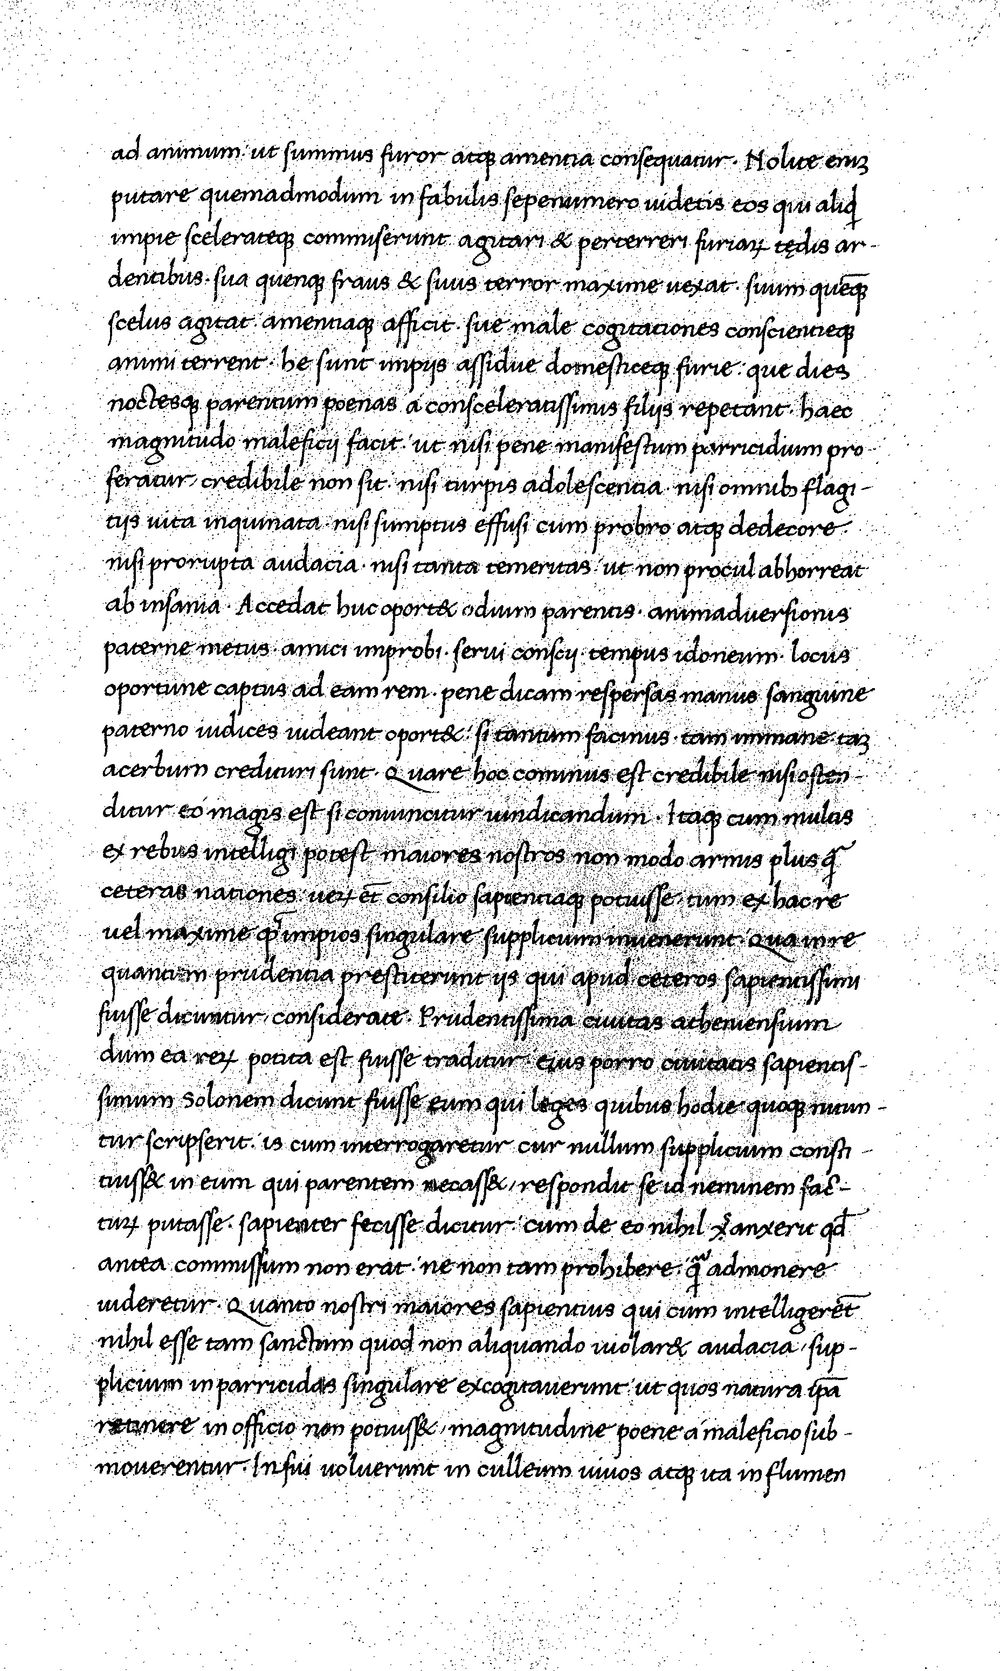 ad animum. ut summus furor atq amentia consequatur. Nolite eniʒ
putare quemadmodum in fabulis sepenumero uidetis eos qui aliqd̄
impie scelerateq commiserunt agitari & perterreri furiaꝝ tędis ar-
dentibus. sua quenq fraus & suus terror maxime uexat. suum queq̄
scelus agitat. amentiaq afficit. sue male cogitationes conscientieq
animi terrent. he sunt impijs assidue domesticeq furie. que dies
noctesq parentum poenas a consceleratissimis filijs repetant. haec
magnitudo maleficij facit. ut nisi pene manifestum parricidium pro
feratur, credibile non sit. nisi turpis adolescentia. nisi omnibꝫ flagi-
tijs uita inquinata. nisi sumptus effusi cum probro atq dedecore.
nisi prorupta audacia. nisi tanta temeritas. ut non procul abhorreat
ab insania. Accedat huc oport& odium parentis. animaduersionis
paterne metus. amici improbi. serui conscij. tempus idoneum. locus
oportune captus ad eam rem. pene dicam respersas manus sanguine
paterno iudices uideant oport&. si tantum facinus. tam immane. taʒ
acerbum credituri sunt. Quare hoc cominus est credibile nisi osten-
ditur eo magis est si conuincitur uindicandum. Itaq cum multis
ex rebus intelligi potest maiores nostros non modo armis plus qᷓ
ceteras nationes. ueꝝ et̄ consilio sapientiaq potuisse. tum ex hac re
uel maxime qd̄ impios singulare supplicium inuenerunt. Qua in re
quantum prudentia prestiterunt ijs qui apud ceteros sapientissimi
fuisse dicuntur, considerate. Prudentissima ciuitas atheniensium
dum ea reꝝ potita est fuisse traditur. ejus porro ciuitatis sapientis-
simum Solonem dicunt fuisse eum qui leges quibus hodie quoq utun-
tur scripserit. is cum interrogaretur cur nullum supplicium consti-
tuiss& in eum qui parentem necass&, respondit se id neminem fac̄-
tuꝝ putasse. sapienter fecisse dicitur. cum de eo nihil sanxerit qd̄
antea commissum non erat. ne non tam prohibere. qᷓ admonere
uideretur. Quanto nostri maiores sapientius qui cum intelligeret̄
nihil esse tam sanctum quod non aliquando uiolar& audacia, sup-
plicium in parricidas singulare excogitauerunt. ut quos natura ip̄a
retinere in officio non potuiss&, magnitudine poene a maleficio sub-
mouerentur. Insui uoluerunt in culleum uiuos atq ita in flumen